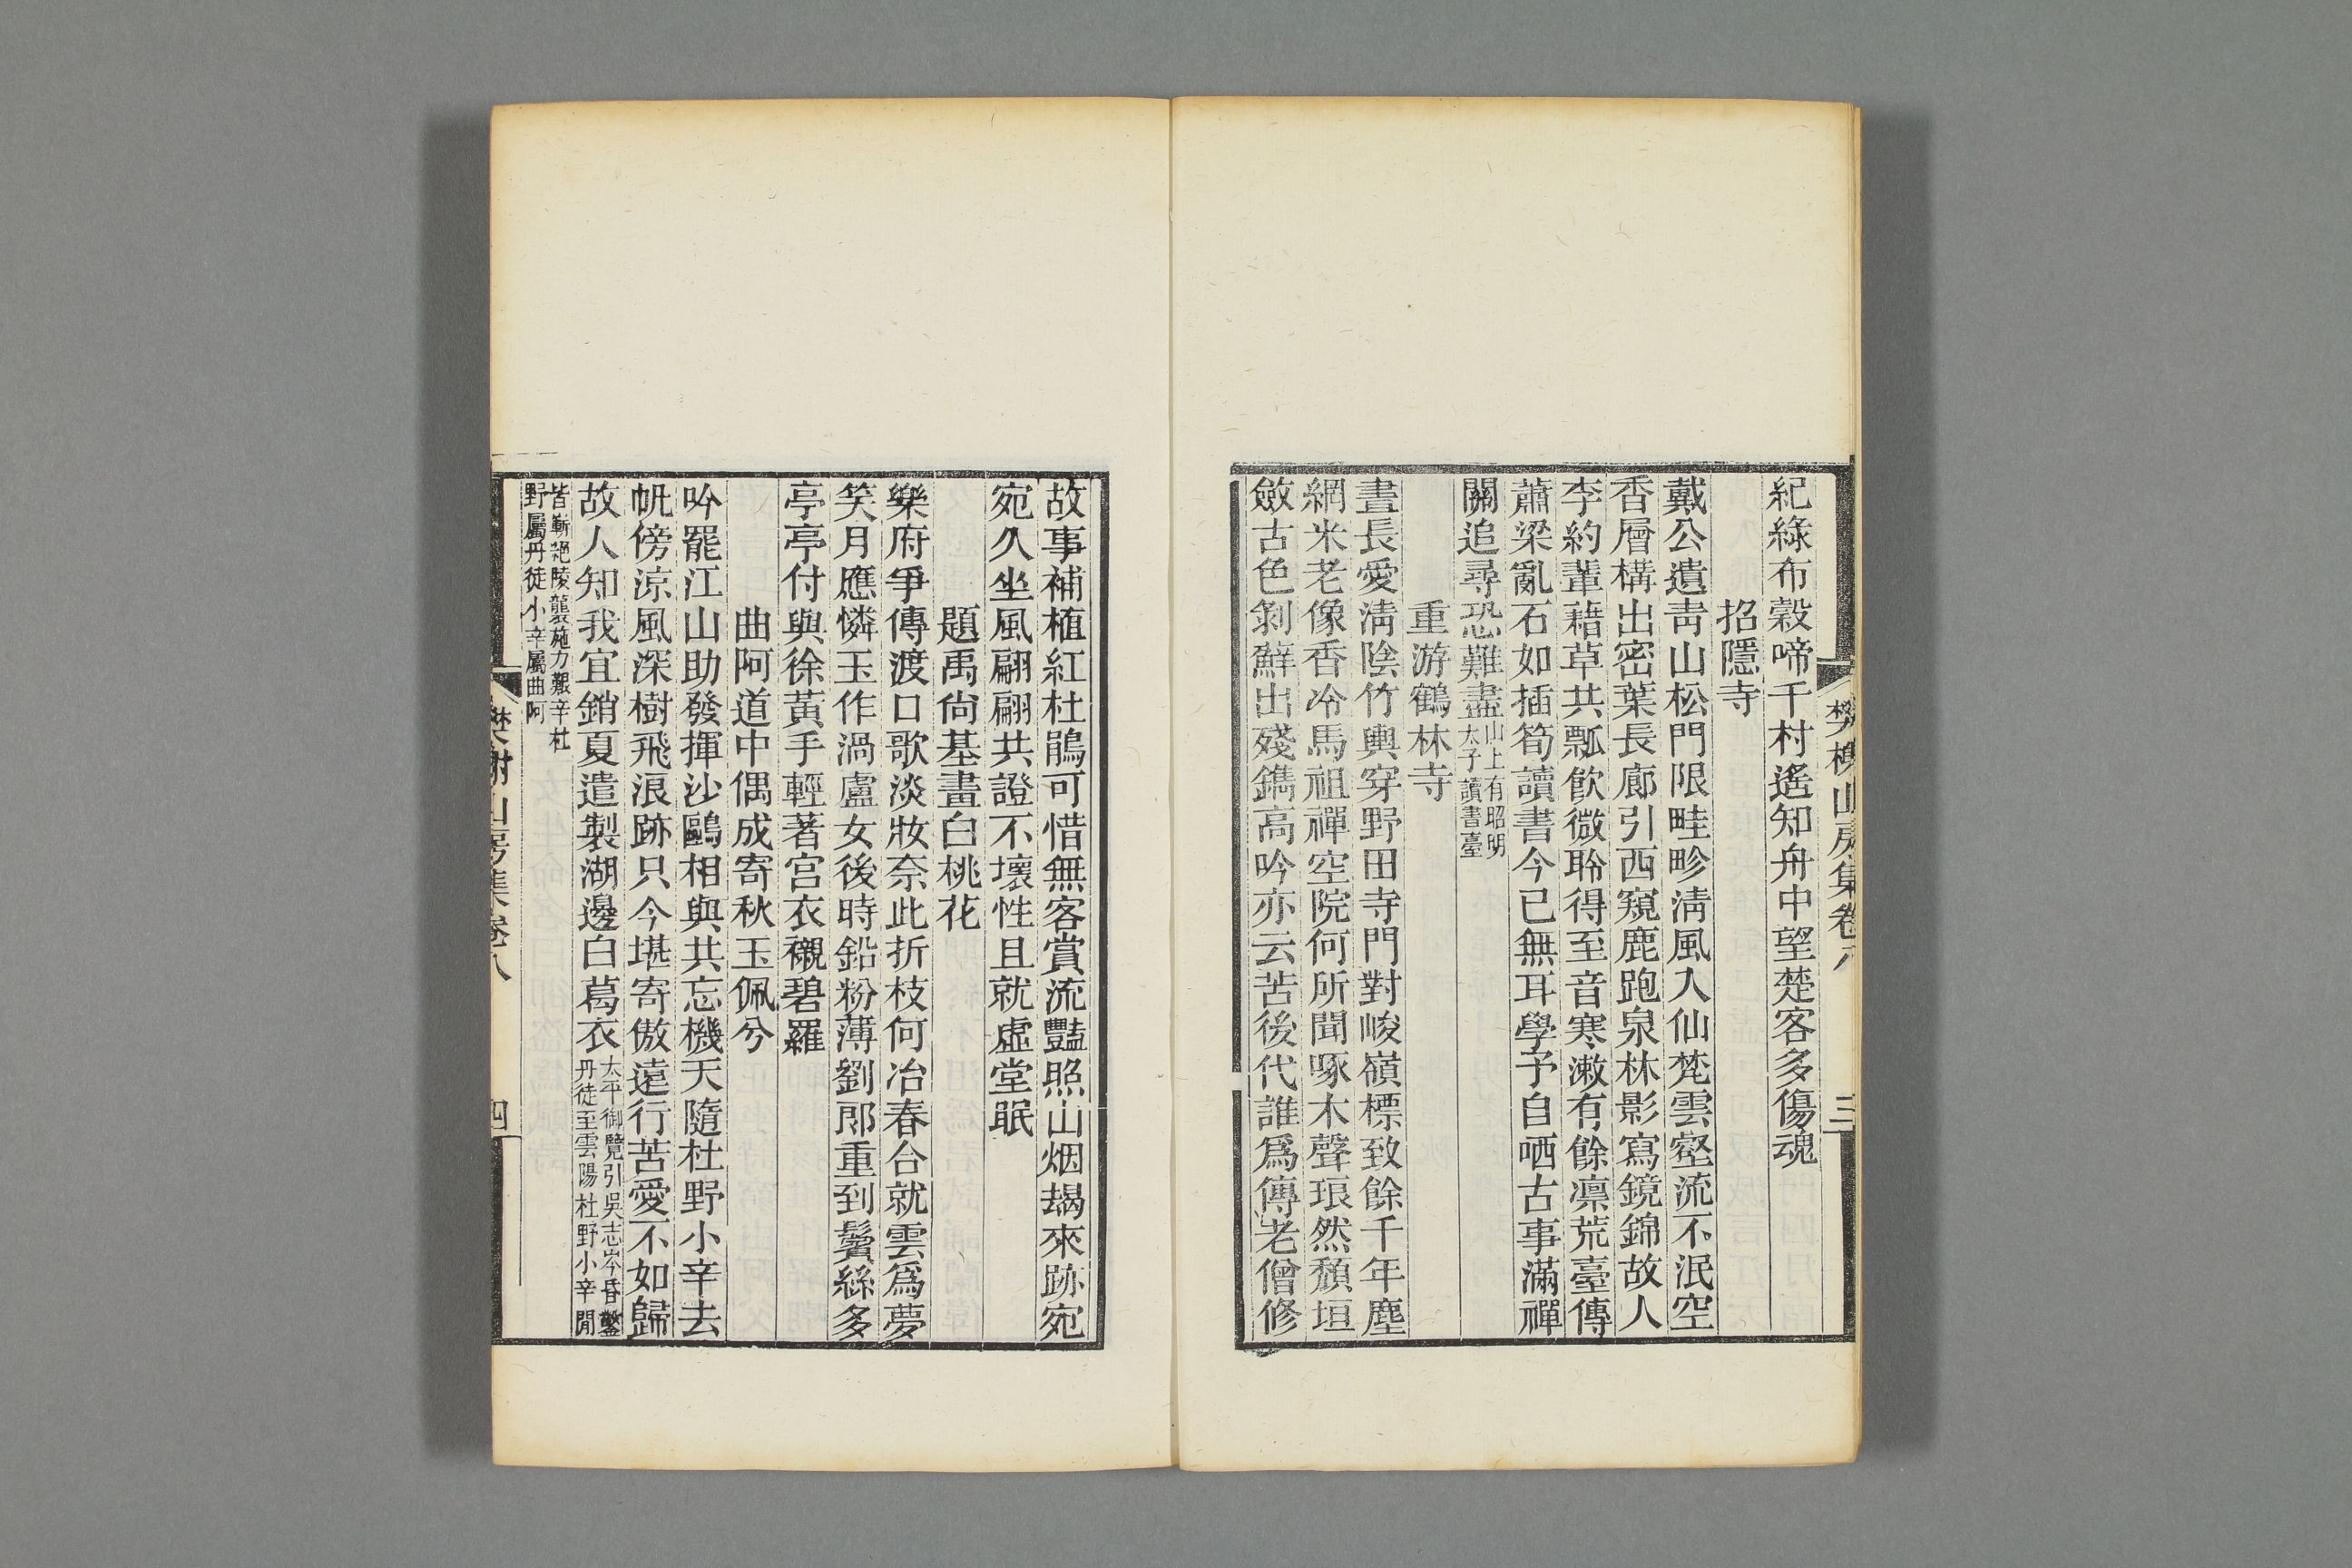 紀綠布穀啼千村遙知舟中望楚客多傷魂
招隱寺
戴公遺靑山松門限畦畛淸風入仙梵雲壑流不泯空
香層構出密葉長廊引西窺鹿跑泉林影寫鏡錦故人
李約輩藉草共瓢飮微聆得至音寒漱有餘凛荒臺傳
蕭梁亂石如插筍讀書今已無耳學予自哂古事滿禪
關追尋恐難盡山上有昭明太子讀書臺
重游鶴林寺
晝長愛淸陰竹輿穿野田寺門對峻嶺標致餘千年塵
網米老像香冷馬祖禪空院何所聞啄木聲琅然頹垣
斂古色剝蘚出殘鐫高吟亦云苦後代誰爲傳老僧修
樊榭山房集卷八
三
故事補植紅杜鵑可惜無客賞流豔照山烟朅來跡宛
宛久坐風翩翩共證不壞性且就虛堂眠
題禹尙基畫白桃花
樂府爭傳渡口歌淡妝奈此折枝何冶春合就雲爲夢
笑月應憐玉作渦盧女後時鉛粉薄劉郞重到鬢絲多
亭亭付與徐黃手輕著宮衣襯碧羅
曲阿道中偶成寄秋玉佩兮
吟罷江山助發揮沙鷗相與共忘機天隨杜野小辛去
帆傍涼風深樹飛浪跡只今堪寄傲遠行苦愛不如歸
故人知我宜銷夏遣製湖邊白葛衣太平御覽引吳志岑昏鑿丹徒至雲陽杜野小辛閒
皆斬絕陵襲施力艱辛杜野屬丹徒小辛屬曲阿
樊榭山房集卷八
四